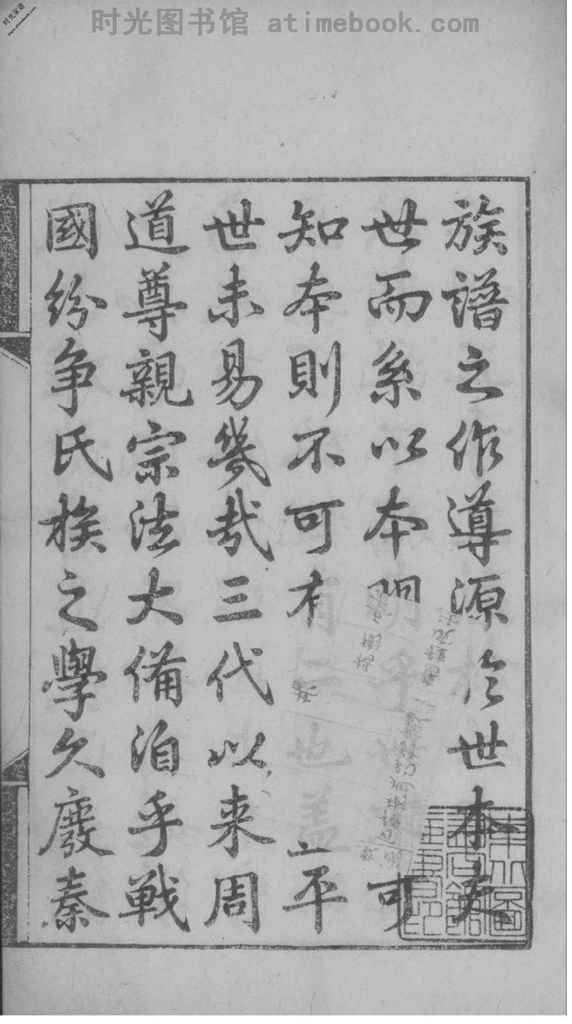 时光图书馆 atimebook.com
族譜之作導源於世本夫
世而系以本明 可
知本則不可 平
世未易幾哉三代以来周
道尊親宗法大備洎乎戰
國紛争氏族之學久廢秦